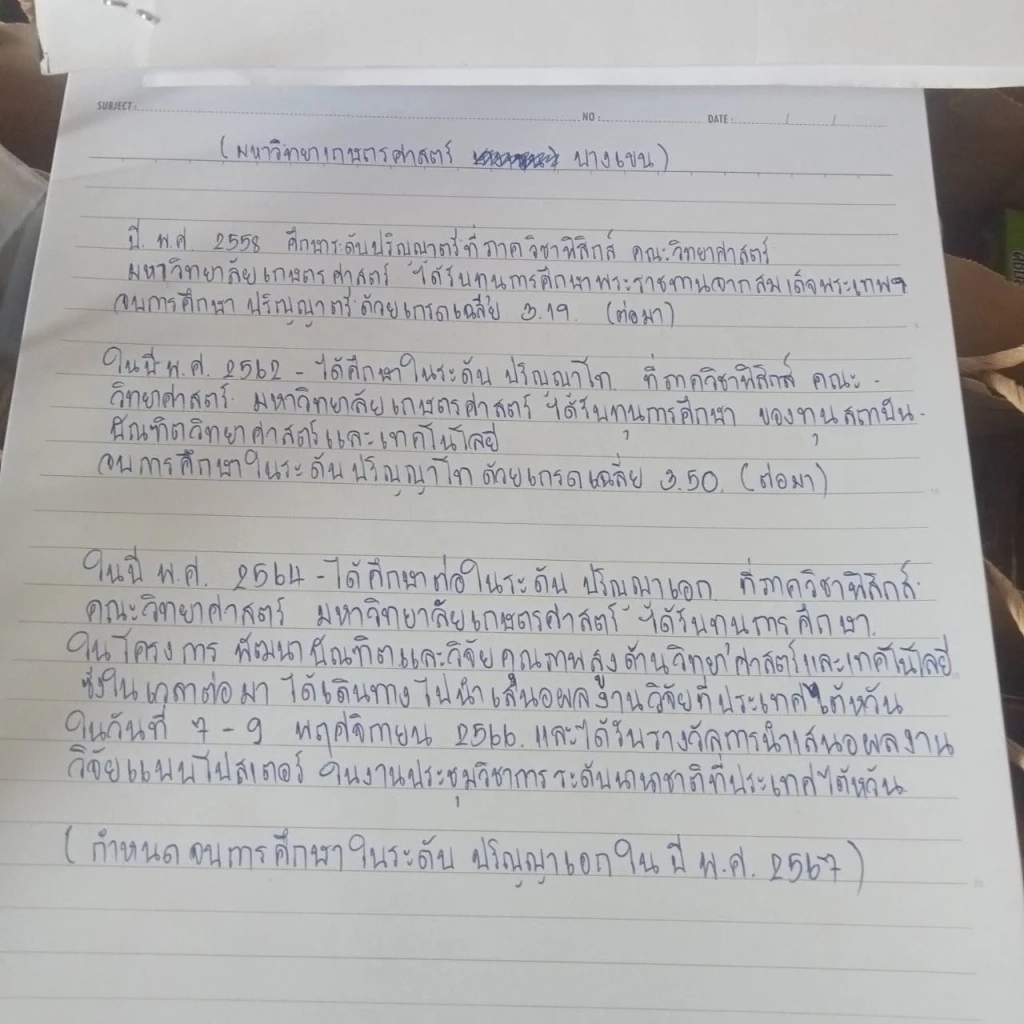 SUBJECT : NO : DATE : / /
(มหาวิทยาเกษตรศาสตร์ บางเขน)
ปี พ.ศ. 2558 ศึกษาระดับปริญญาตรีที่ภาควิชาฟิสิกส์ คณะวิทยาศาสตร์
มหาวิทยาลัยเกษตรศาสตร์ ได้รับทุนการศึกษาพระราชทานจากสมเด็จพระเทพฯ
จบการศึกษา ปริญญาตรี ด้วยเกรดเฉลี่ย 3.19. (ต่อมา)
ในปี พ.ศ. 2562 - ได้ศึกษาในระดับ ปริญญาโท ที่ภาควิชาฟิสิกส์ คณะ -
วิทยาศาสตร์ มหาวิทยาลัยเกษตรศาสตร์ ได้รับทุนการศึกษา ของทุนสถาบัน -
บัณฑิตวิทยาศาสตร์และเทคโนโลยี
จบการศึกษาในระดับปริญญาโท ด้วยเกรดเฉลี่ย 3.50. (ต่อมา)
ในปี พ.ศ. 2564 - ได้ศึกษาต่อในระดับ ปริญญาเอก ที่ภาควิชาฟิสิกส์
คณะวิทยาศาสตร์ มหาวิทยาลัยเกษตรศาสตร์ ได้รับทุนการศึกษา
ในโครงการ พัฒนาบัณฑิตและวิจัยคุณภาพสูงด้านวิทยาศาสตร์และเทคโนโลยี
ซึ่งในเวลาต่อมา ได้เดินทางไปนำเสนอผลงานวิจัยที่ประเทศไต้หวัน
ในวันที่ 7 - 9 พฤศจิกายน 2566. และได้รับรางวัลการนำเสนอผลงาน
วิจัยแบบโปสเตอร์ ในงานประชุมวิชาการระดับนานาชาติที่ประเทศไต้หวัน
(กำหนดจบการศึกษาในระดับ ปริญญาเอกใน ปี พ.ศ. 2567)